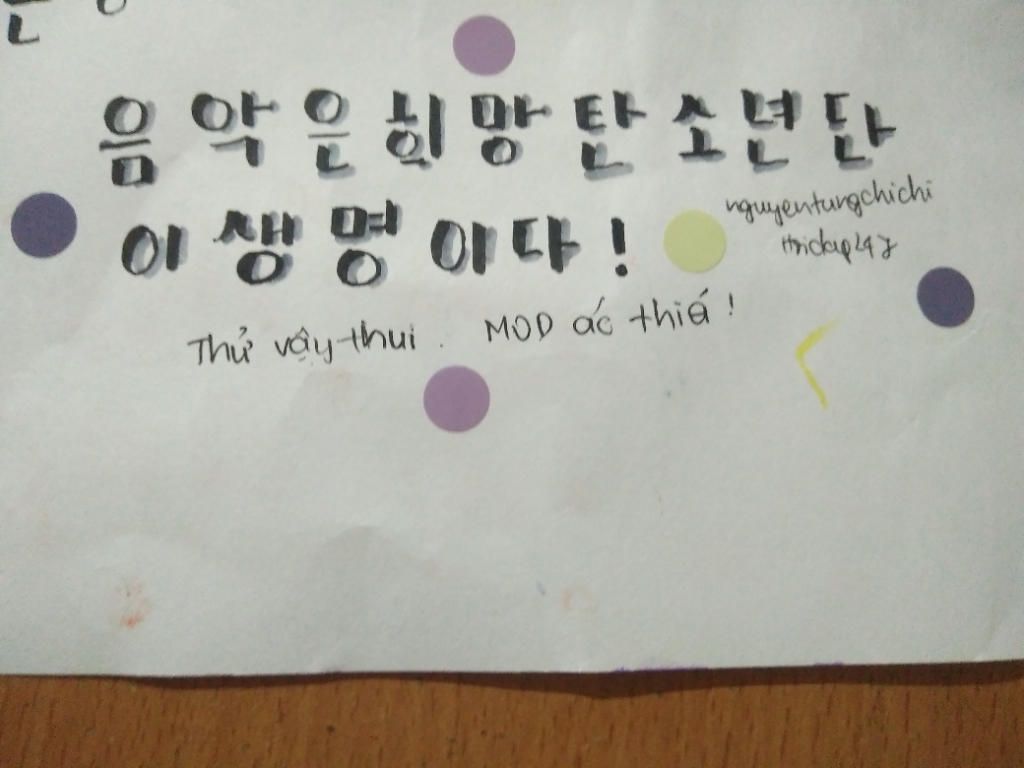 음악은희망탄소년단
이생명이다!
nguyentungchichi
Thử vậy thui. MOD ác thiá!